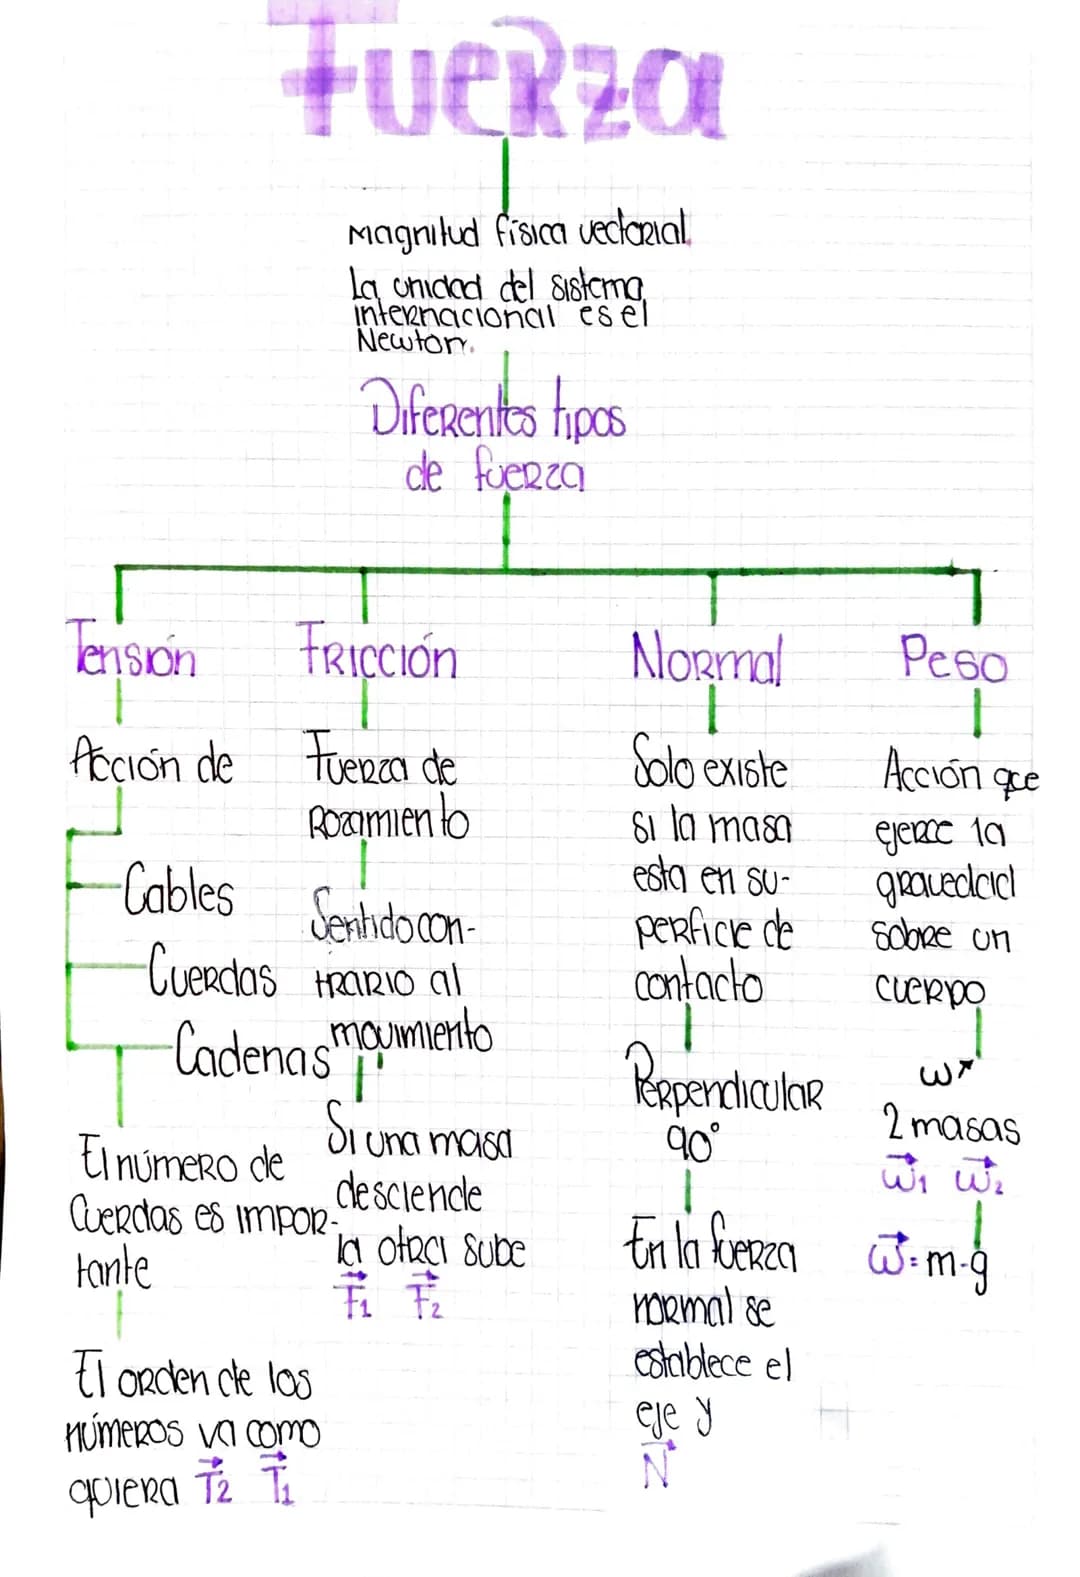 Fuerza
Magnitud física vectorial.
La unidad del sistema
internacional es el
Newton.
Diferentes tipos
de fuerza
Tensión
Acción de
Cables
Cuerdas
Cadenas
El número de
Cuerdas es impor-
tante
El orden de los
números va como
quiera T⃗2 T⃗1
Fricción
Fuerza de
Rozamiento
Sentido con-
trario al
movimiento
Si una masa
desciende
la otra sube
F⃗1 F⃗2
Normal
Solo existe
si la masa
esta en su-
perficie de
contacto
Perpendicular
90°
En la fuerza
normal se
establece el
eje y
N⃗
Peso
Acción que
ejerce la
gravedad
sobre un
cuerpo
w↗
2 masas
w⃗1 w⃗2
w⃗=m·g